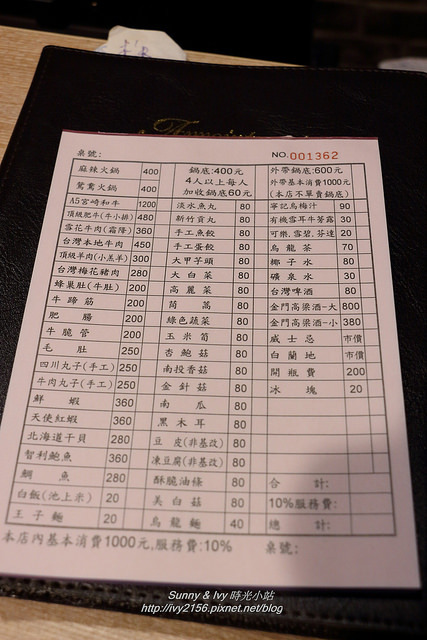 桌號:
NO.001362
麻辣火鍋 400
鴛鴦火鍋 400
A5宮崎和牛 1200
頂級肥牛(牛小排) 480
雪花牛肉(霜降) 360
台灣本地牛肉 450
頂級羊肉(小羔羊) 300
台灣梅花豬肉 280
蜂巢肚(牛肚) 200
牛蹄筋 200
肥腸 200
牛脆管 200
毛肚 250
四川丸子(手工) 250
牛肉丸子(手工) 250
鮮蝦 360
天使紅蝦 360
北海道干貝 280
智利鮑魚 360
鯛魚 280
白飯(池上米) 20
王子麵 20
鍋底:400元
4人以上每人
加收鍋底60元
淡水魚丸 80
新竹貢丸 80
手工魚餃 80
手工蛋餃 80
大甲芋頭 80
大白菜 80
高麗菜 80
茼蒿 80
綠色蔬菜 80
玉米筍 80
杏鮑菇 80
南投香菇 80
金針菇 80
南瓜 80
黑木耳 80
豆皮(非基改) 80
凍豆腐(非基改) 80
酥脆油條 80
美白菇 80
烏龍麵 40
外帶鍋底:600元
外帶基本消費1000元
(本店不單賣鍋底)
寧記烏梅汁 90
有機雪耳牛蒡露 30
可樂.雪碧.芬達 20
烏龍茶 70
椰子水 80
礦泉水 30
台灣啤酒 80
金門高梁酒-大 800
金門高梁酒-小 380
威士忌 市價
白蘭地 市價
開瓶費 200
冰塊 20
合計:
10%服務費:
總計:
本店內基本消費1000元,服務費:10%
桌號:
Sunny & Ivy 時光小站
http://ivy2156.pixnet.net/blog